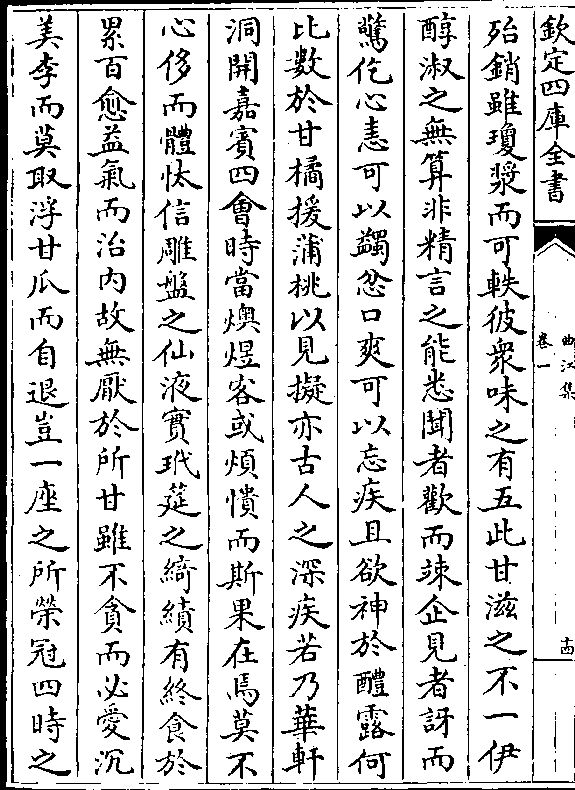 欽定四庫全書
曲江集
卷一
十四
殆銷雖瓊漿而可軼彼衆味之有五此甘滋之不一伊
醇淑之無算非精言之能悉聞者歡而竦企見者訝而
驚仡心恚可以蠲忿口爽可以忘疾且欲神於醴露何
比數於甘橘援蒲桃以見擬亦古人之深疾若乃華軒
洞開嘉賓四會時當燠煜客或煩憒而斯果在焉莫不
心侈而體忲信雕盤之仙液實玳筵之綺繢有終食於
累百愈益氣而治内故無厭於所甘雖不貪而必愛沉
美李而莫取浮甘瓜而自退豈一座之所榮冠四時之